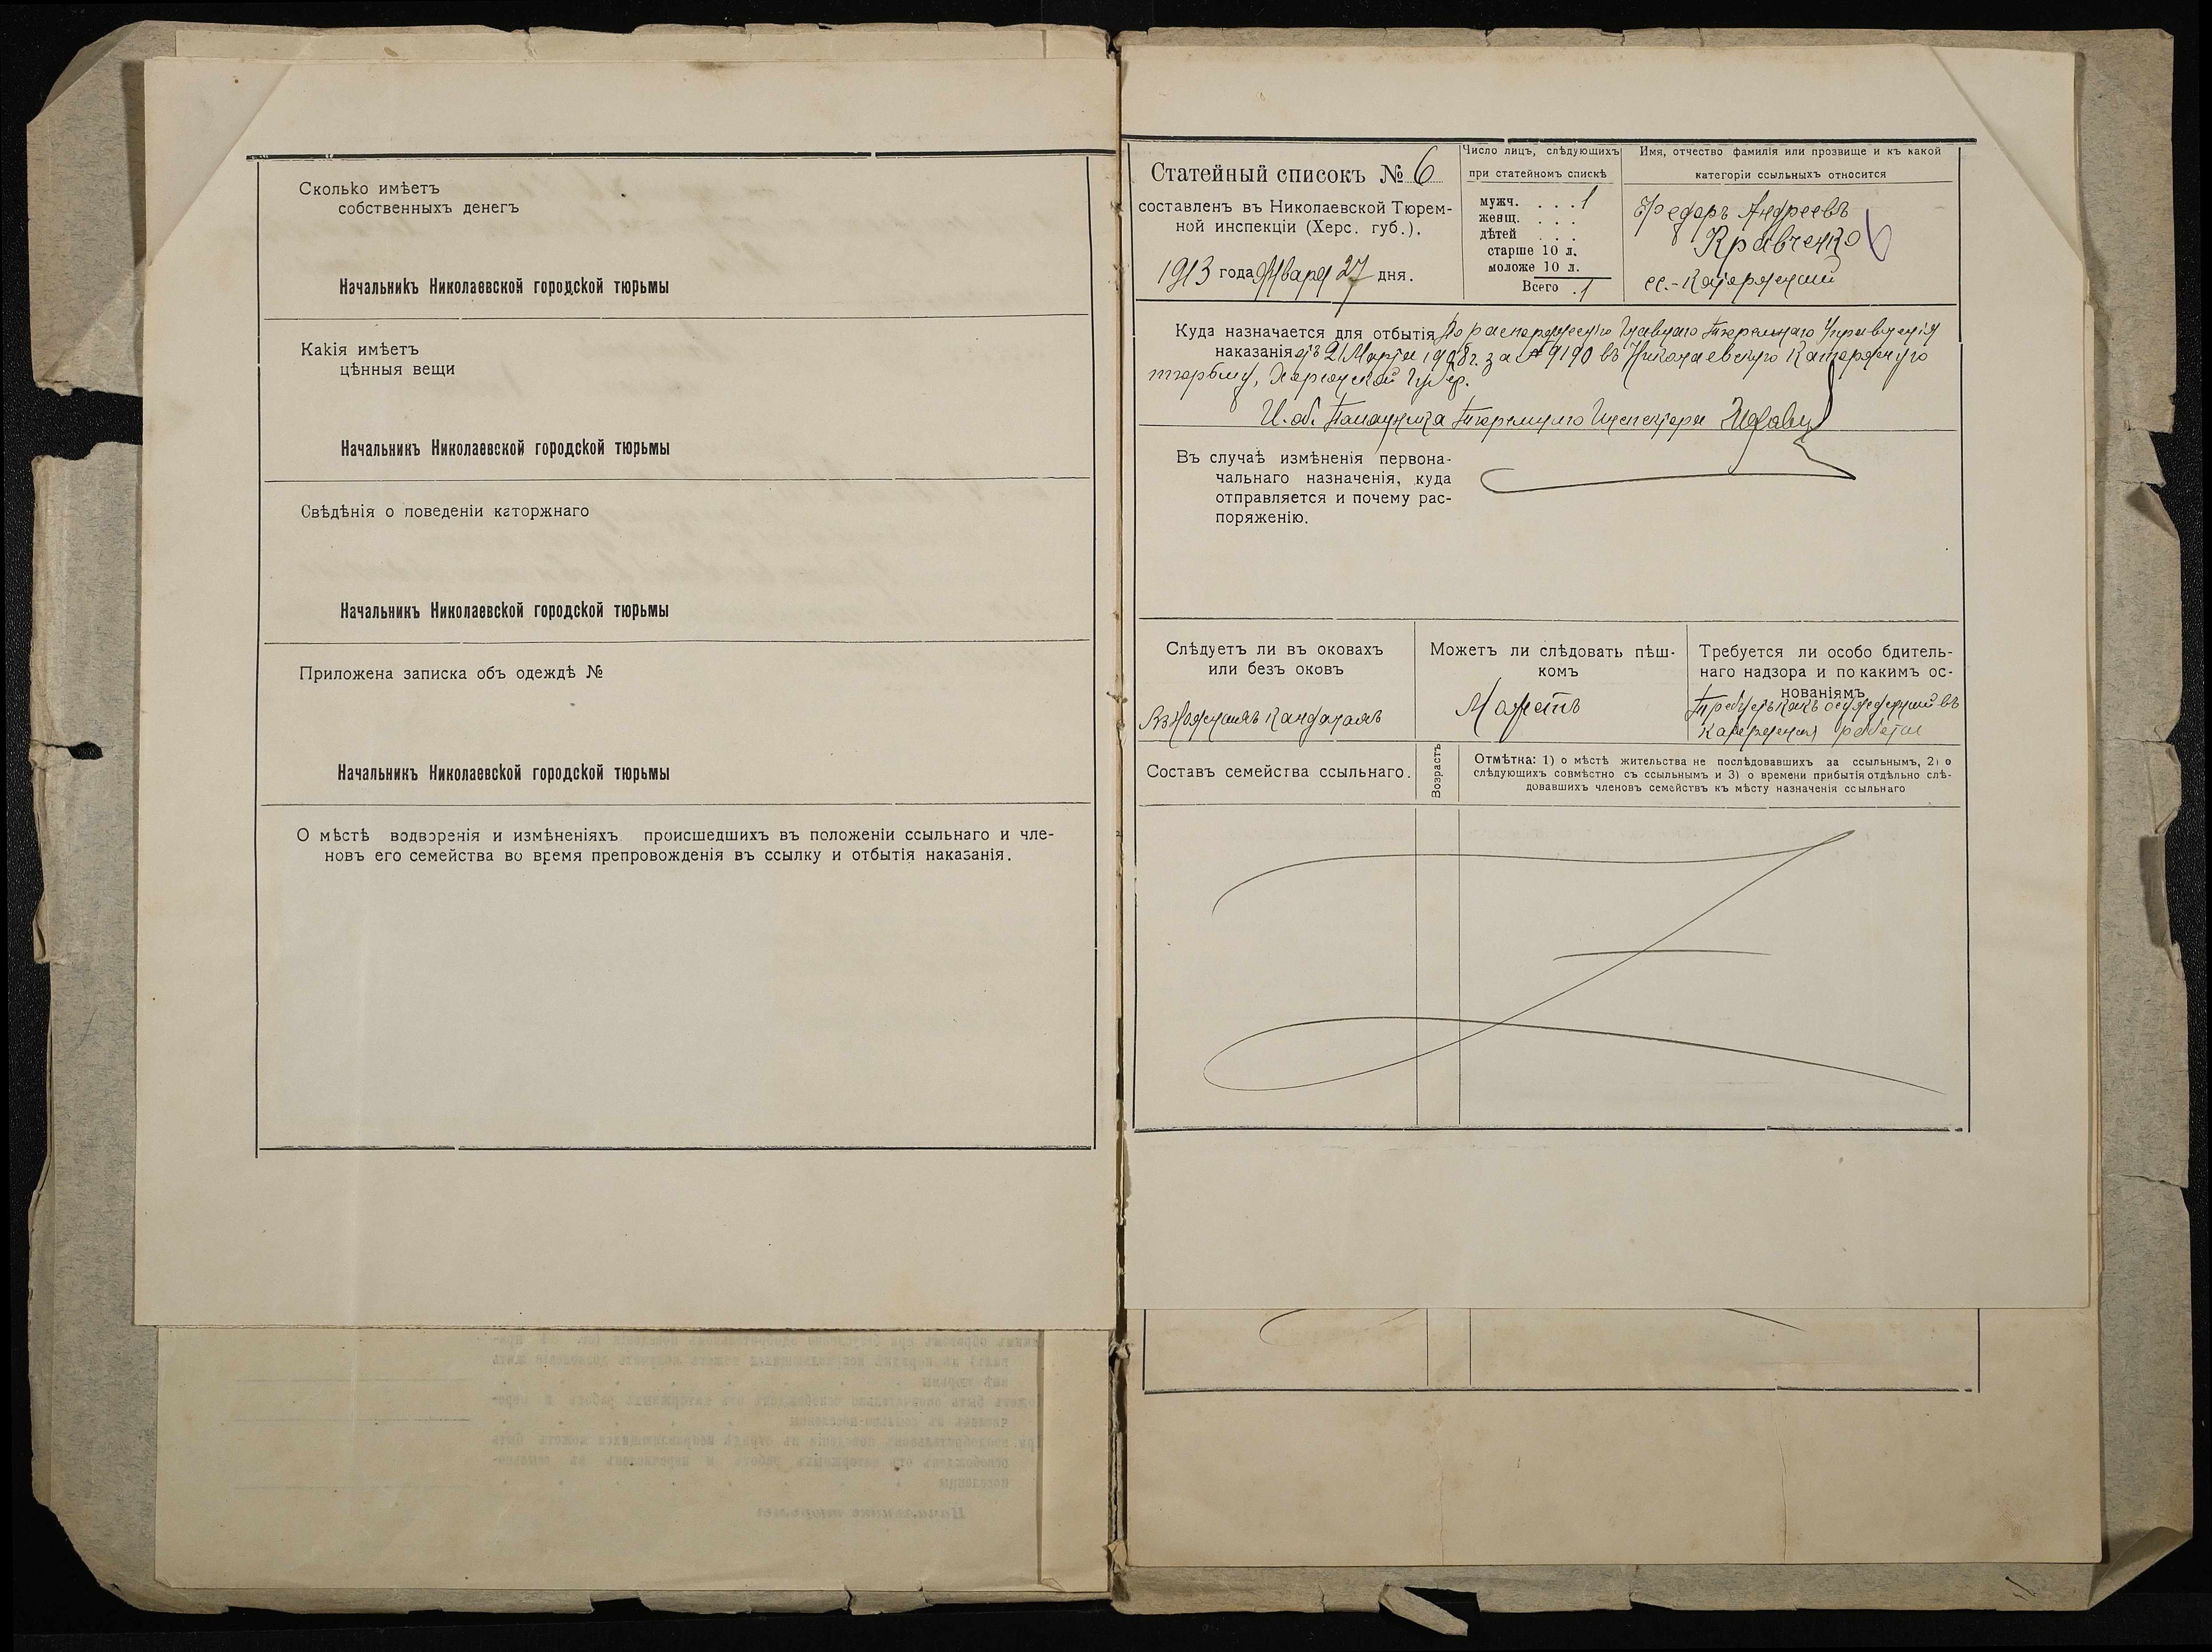 Сколько имѣетъ
собственныхъ денегъ
Начальникъ Николаевской городской тюрьмы
Какія имѣетъ
цѣнныя вещи
Начальникъ Николаевской городской тюрьмы
Свѣдѣнія о поведеніи каторжнаго
Начальникъ Николаевской городской тюрьмы
Приложена записка объ одеждѣ №
Начальникъ Николаевской городской тюрьмы
О мѣстѣ водворенія и измѣненіяхъ происшедшихъ въ положеніи ссыльнаго и чле-
новъ его семейства во время препровожденія въ ссылку и отбытія наказанія.
Статейный списокъ № 6
составленъ въ Николаевской Тюрем-
ной инспекціи (Херс. губ.).
1913 года Января 27 дня.
Число лицъ, слѣдующихъ
при статейномъ спискѣ
мужч. . . . 1
женщ. . . .
дѣтей . . .
старше 10 л.
моложе 10 л.
Всего . 1
Имя, отчество фамилія или прозвище и къ какой
категоріи ссыльныхъ относится
Федоръ Андреевъ
Кравченко
сс.-каторжный
Куда назначается для отбытія По распоряженію Главнаго Тюремнаго Управленія
наказанія отъ 21 Марта 1908 г. за № 9190 въ Николаевскую Каторжную
тюрьму, Херсонской Губер.
И. об. Помощника Тюремнаго Инспектора
Въ случаѣ измѣненія первона-
чальнаго назначенія, куда
отправляется и почему рас-
поряженію.
Слѣдуетъ ли въ оковахъ
или безъ оковъ
Въ ножныхъ кандалахъ
Можетъ ли слѣдовать пѣш-
комъ
Можетъ
Требуется ли особо бдитель-
наго надзора и по какимъ ос-
нованіямъ
Требуетъ какъ осужденный въ
каторжныя работы
Составъ семейства ссыльнаго.
Возрастъ
Отмѣтка: 1) о мѣстѣ жительства не послѣдовавшихъ за ссыльнымъ, 2) о
слѣдующихъ совмѣстно съ ссыльнымъ и 3) о времени прибытія отдѣльно слѣ-
довавшихъ членовъ семействъ къ мѣсту назначенія ссыльнаго